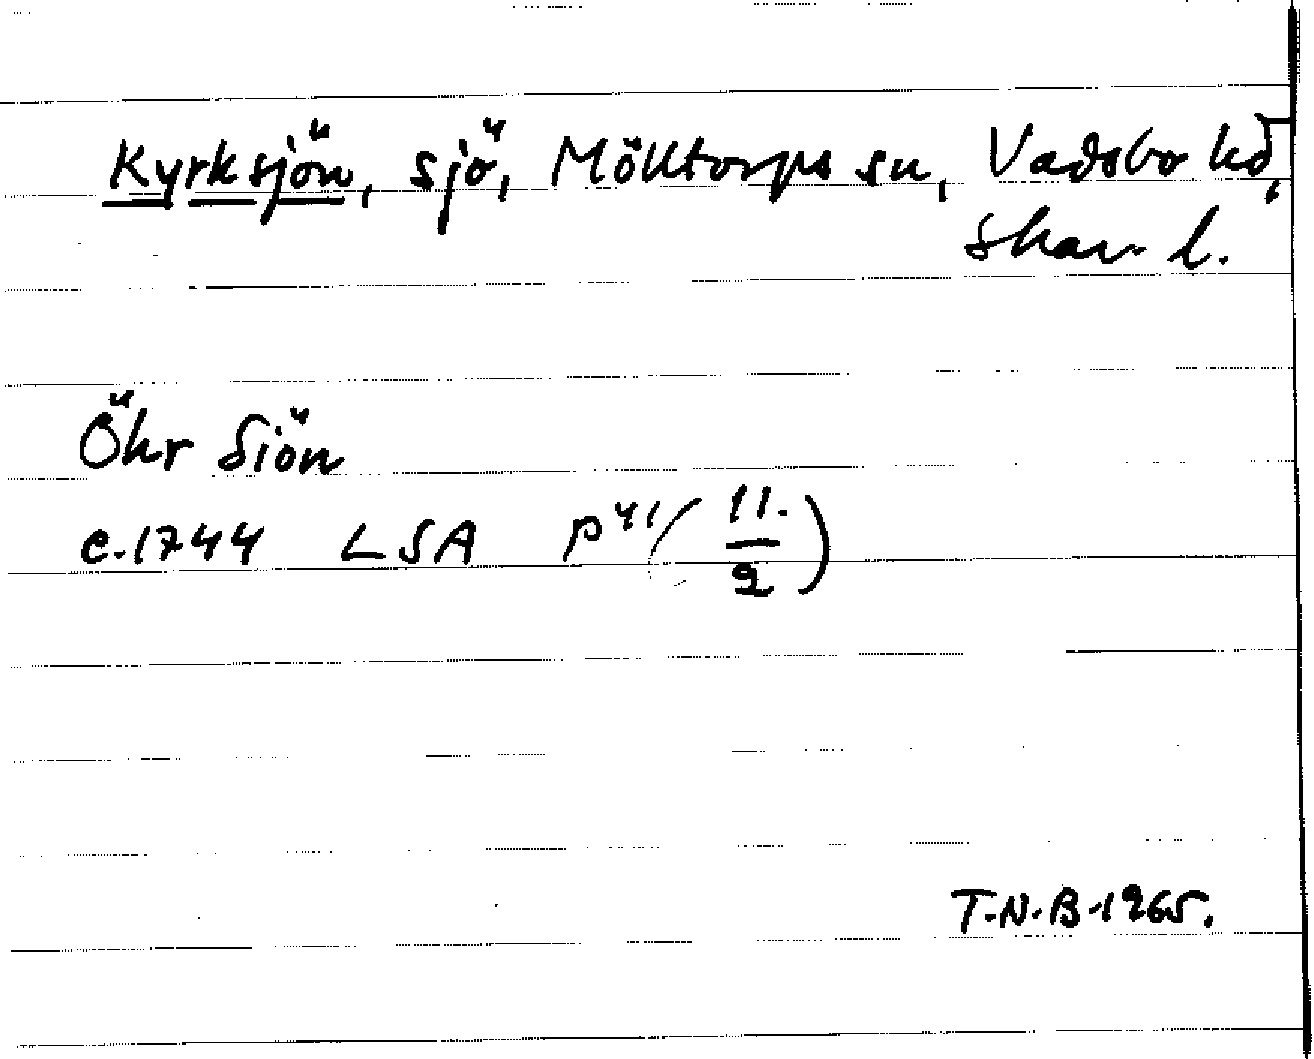 Kyrksjön, sjö, Mölltorps sn, Vadsbo hd,
Skar. l.
Öhr Siön
c. 1744 LSA P 41 (11./2)
T.N.B. 1965.